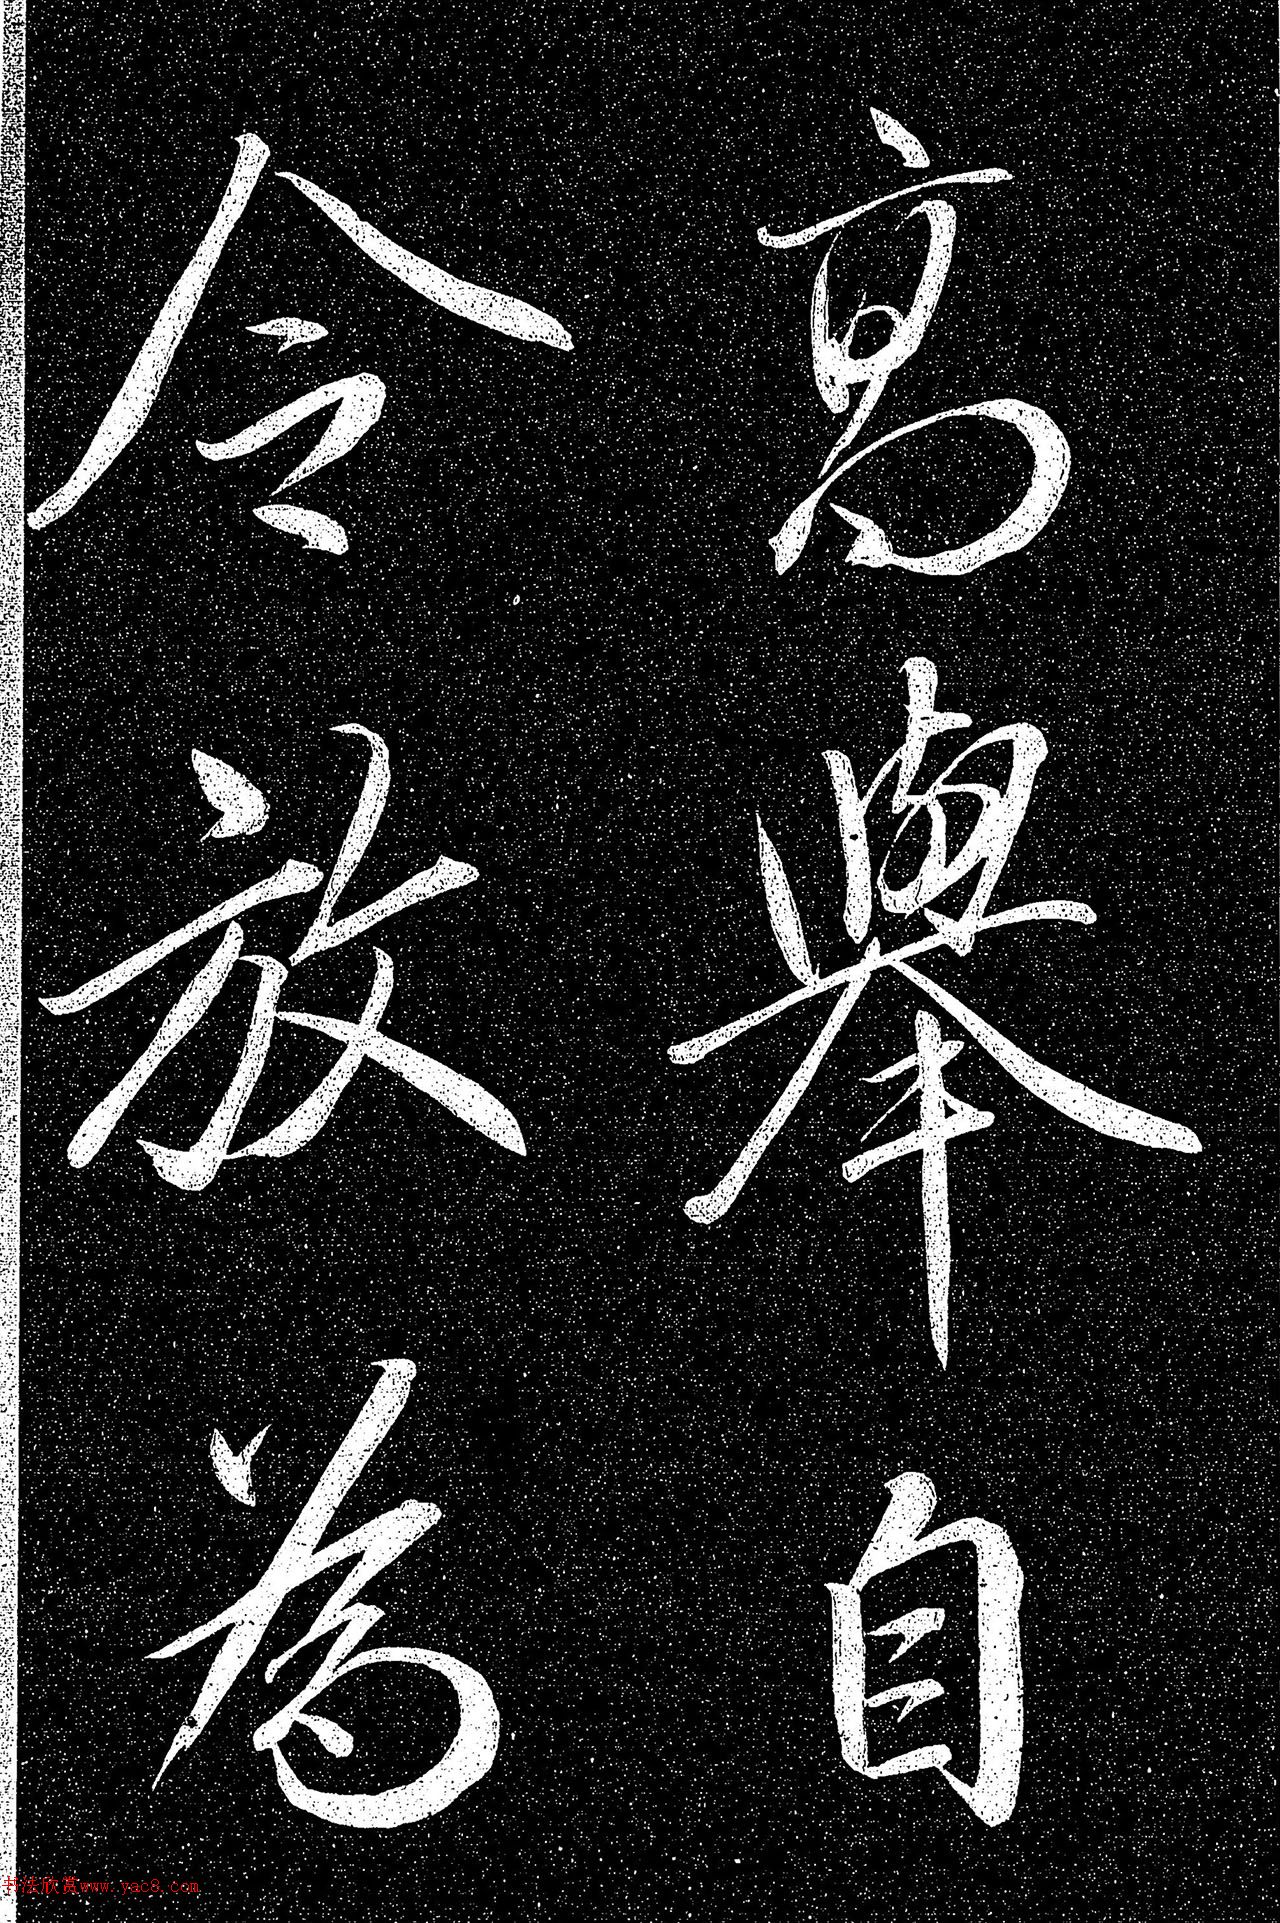 高舉自
令放為
书法欣赏www.yac8.com